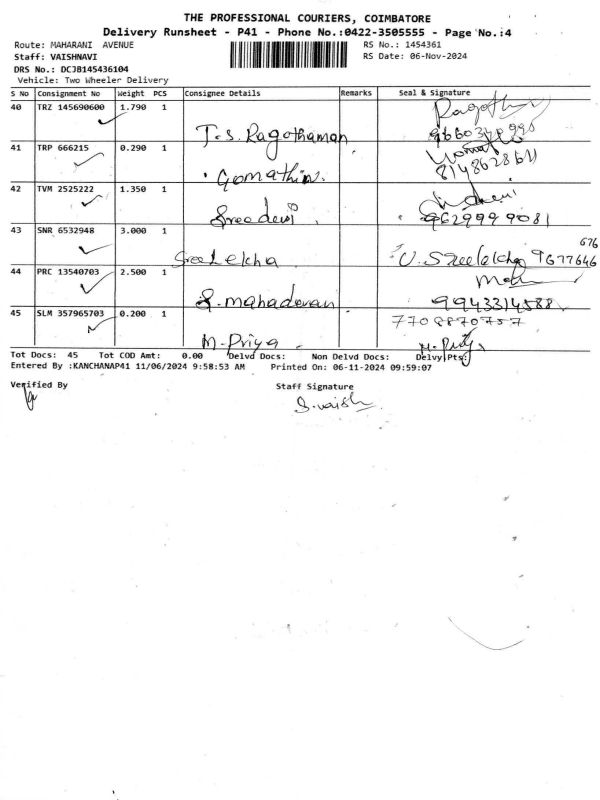 THE PROFESSIONAL COURIERS, COIMBATORE
Delivery Runsheet - P41 - Phone No.:0422-3505555 - Page No.:4
Route: MAHARANI AVENUE RS No.: 1454361
Staff: VAISHNAVI RS Date: 06-Nov-2024
DRS No.: DCJB145436104
Vehicle: Two Wheeler Delivery
S No Consignment No Weight PCS Consignee Details Remarks Seal & Signature
40 TRZ 145690600 1.790 1 T.S. Ragothaman Ragoth
41 TRP 666215 0.290 1 Gomathi 8148628611
42 TVM 2525222 1.350 1 Sreedevi 9629999081
43 SNR 6532948 3.000 1 SreeLekha U. Sreelekha 9677646 676
44 PRC 13540703 2.500 1 S. mahadevan 9943314588
45 SLM 357965703 0.200 1 M. Priya 7708870757 M. Priy
Tot Docs: 45 Tot COD Amt: 0.00 Delvd Docs: Non Delvd Docs: Delvy Pts:
Entered By :KANCHANAP41 11/06/2024 9:58:53 AM Printed On: 06-11-2024 09:59:07
Verified By Staff Signature
S. vaish